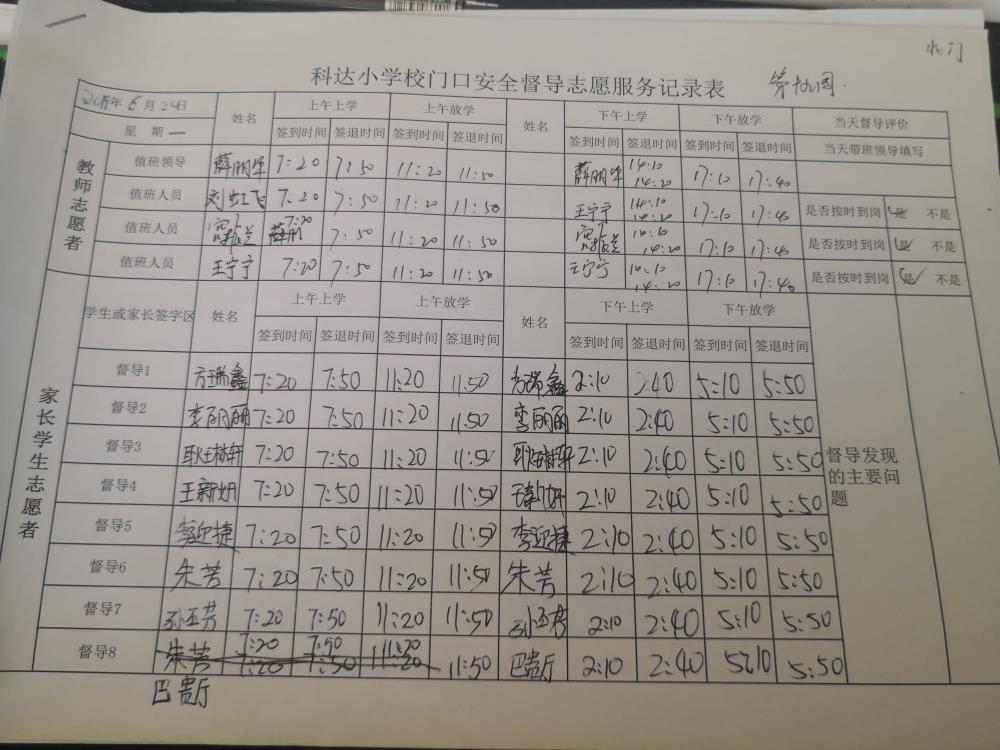 北门
科达小学校门口安全督导志愿服务记录表
年 6 月 24日 姓名 上午上学 上午放学 姓名 下午上学 下午放学 当天督导评价
星 期一 签到时间 签退时间 签到时间 签退时间 签到时间 签退时间 签到时间 签退时间 当天带班领导填写
教师志愿者
值班领导 薛丽华 7:20 7:50 11:20 11:50 薛丽华 14:10 14:20 17:10 17:40
值班人员 刘虹飞 7:20 7:50 11:20 11:50 王宁宁 14:10 14:20 17:10 17:40 是否按时到岗 是✓ 不是
值班人员 7:20 7:50 11:20 11:50 14:10 14:20 17:10 17:40 是否按时到岗 是✓ 不是
值班人员 王宁宁 7:20 7:50 11:20 11:50 王宁宁 14:10 14:20 17:10 17:40 是否按时到岗 是✓ 不是
家长学生志愿者
学生或家长签字区 姓名 上午上学 上午放学 姓名 下午上学 下午放学
签到时间 签退时间 签到时间 签退时间 签到时间 签退时间 签到时间 签退时间
督导1 方瑞鑫 7:20 7:50 11:20 11:50 方瑞鑫 2:10 2:40 5:10 5:50
督导2 李丽丽 7:20 7:50 11:20 11:50 李丽丽 2:10 2:40 5:10 5:50
督导3 7:20 7:50 11:20 11:50 2:10 2:40 5:10 5:50
督导发现的主要问题
督导4 王新妍 7:20 7:50 11:20 11:50 王新妍 2:10 2:40 5:10 5:50
督导5 李迎捷 7:20 7:50 11:20 11:50 李迎捷 2:10 2:40 5:10 5:50
督导6 朱芳 7:20 7:50 11:20 11:50 朱芳 2:10 2:40 5:10 5:50
督导7 孙亚芳 7:20 7:50 11:20 11:50 孙亚芳 2:10 2:40 5:10 5:50
督导8 朱芳 7:20 7:50 11:20 11:50 巴贵厅 2:10 2:40 5:10 5:50
巴贵厅